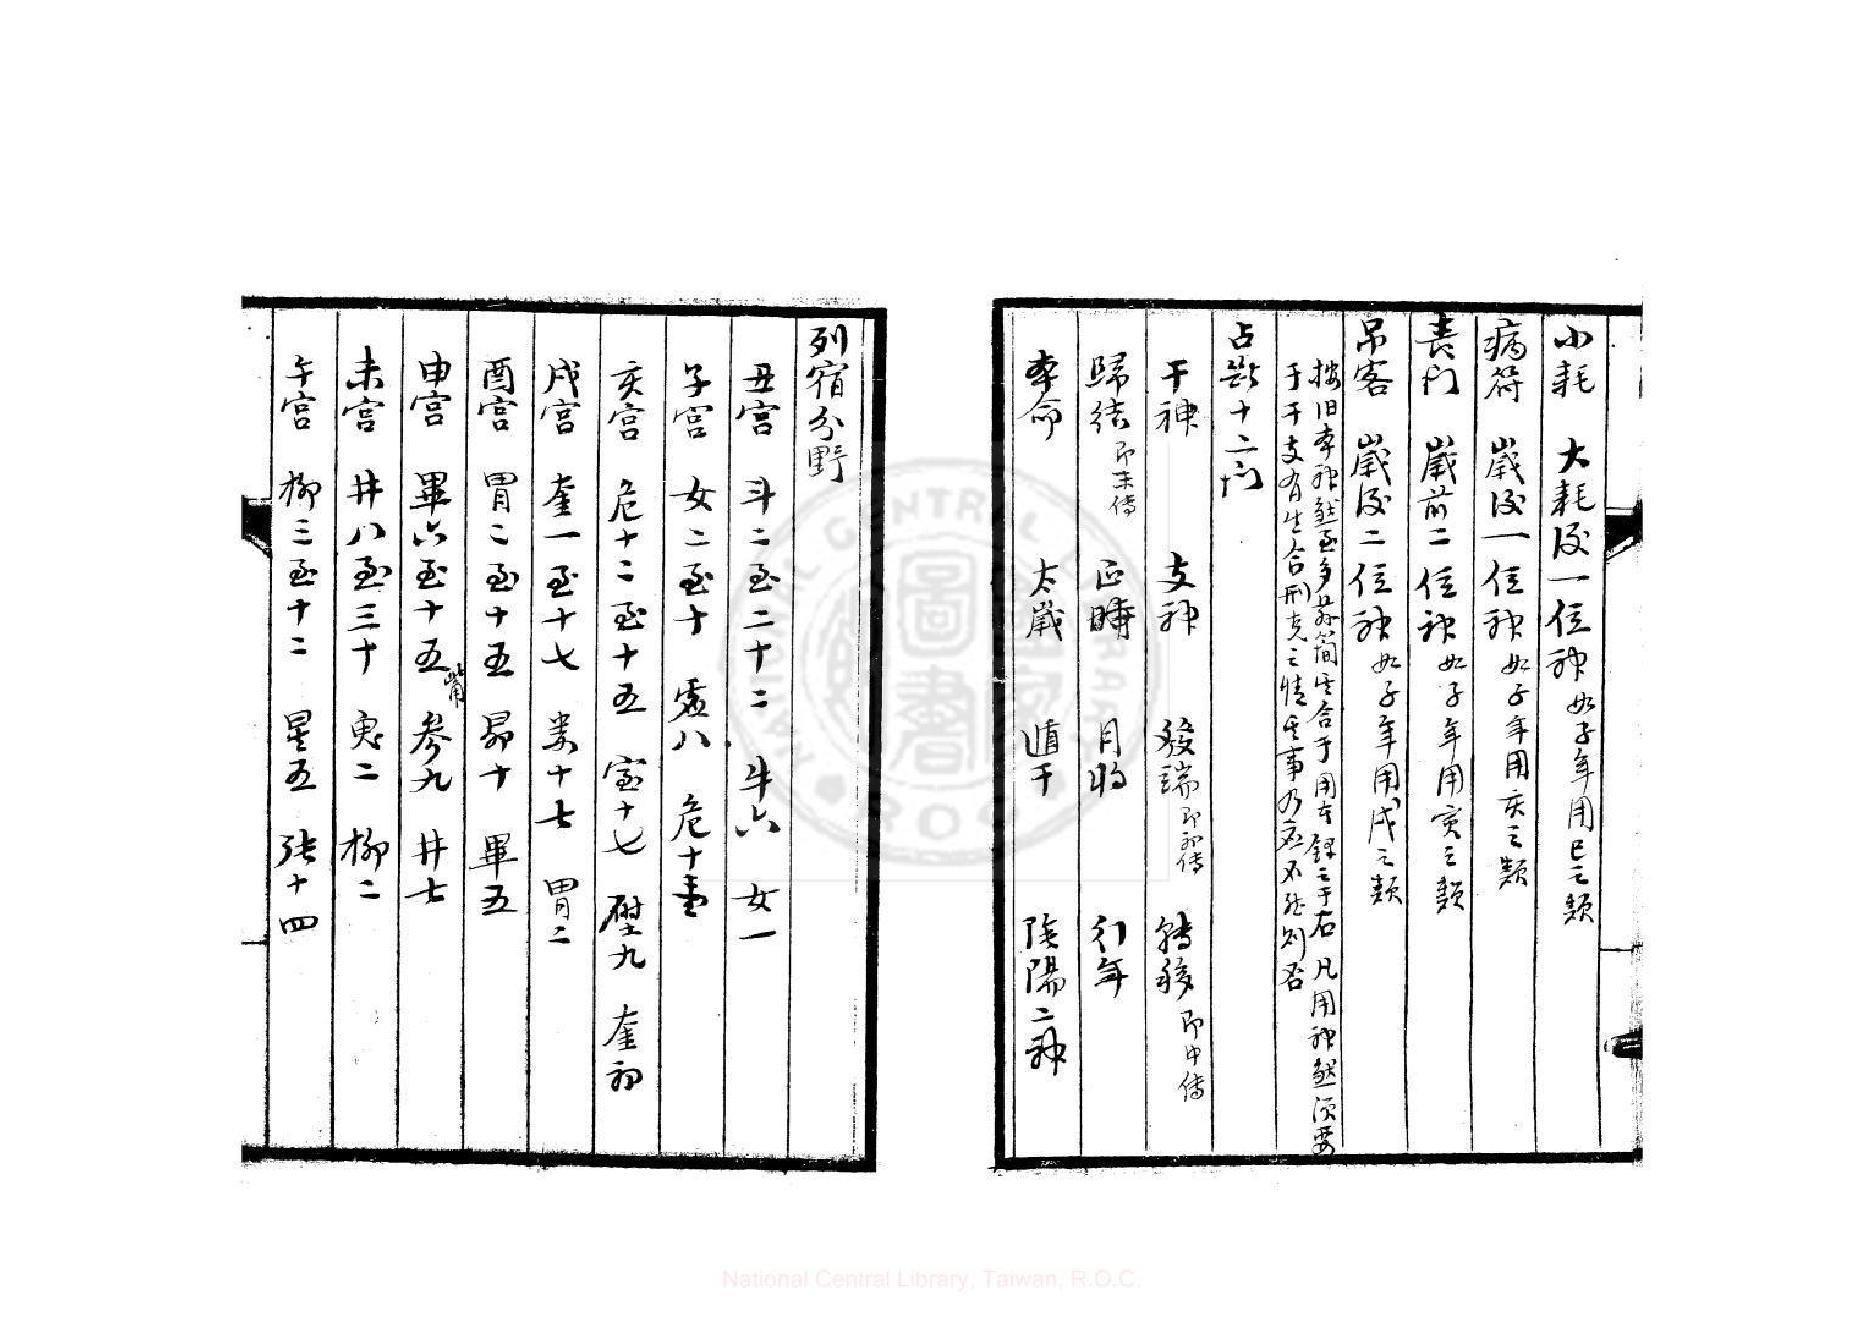 小耗　大耗後一位神如子年用巳之類
病符　歲後一位神如子年用亥之類
喪門　歲前二位神如子年用寅之類
吊客　歲後二位神如子年用戌之類
按旧本神煞至多茲簡其合于用者錄之于右凡用神煞須要
于干支有生合刑克之情其事乃應不然則否
占斷十二門
干神　支神　發端即初傳　轉移即中傳
歸結即末傳　正時　月將　行年
本命　太歲　遁干　陰陽二神
列宿分野
丑宮　斗二至二十二　牛六　女一
子宮　女二至十　虛八　危十壹
亥宮　危十二至十五　室十七　壁九　奎初
戌宮　奎一至十七　婁十七　胃二
酉宮　胃二至十五　昴十　畢五
申宮　畢六至十五　觜　參九　井七
未宮　井八至三十　鬼二　柳二
午宮　柳三至十二　星五　張十四
NATIONAL CENTRAL LIBRARY
ROC
國家圖書館
National Central Library, Taiwan, R.O.C.